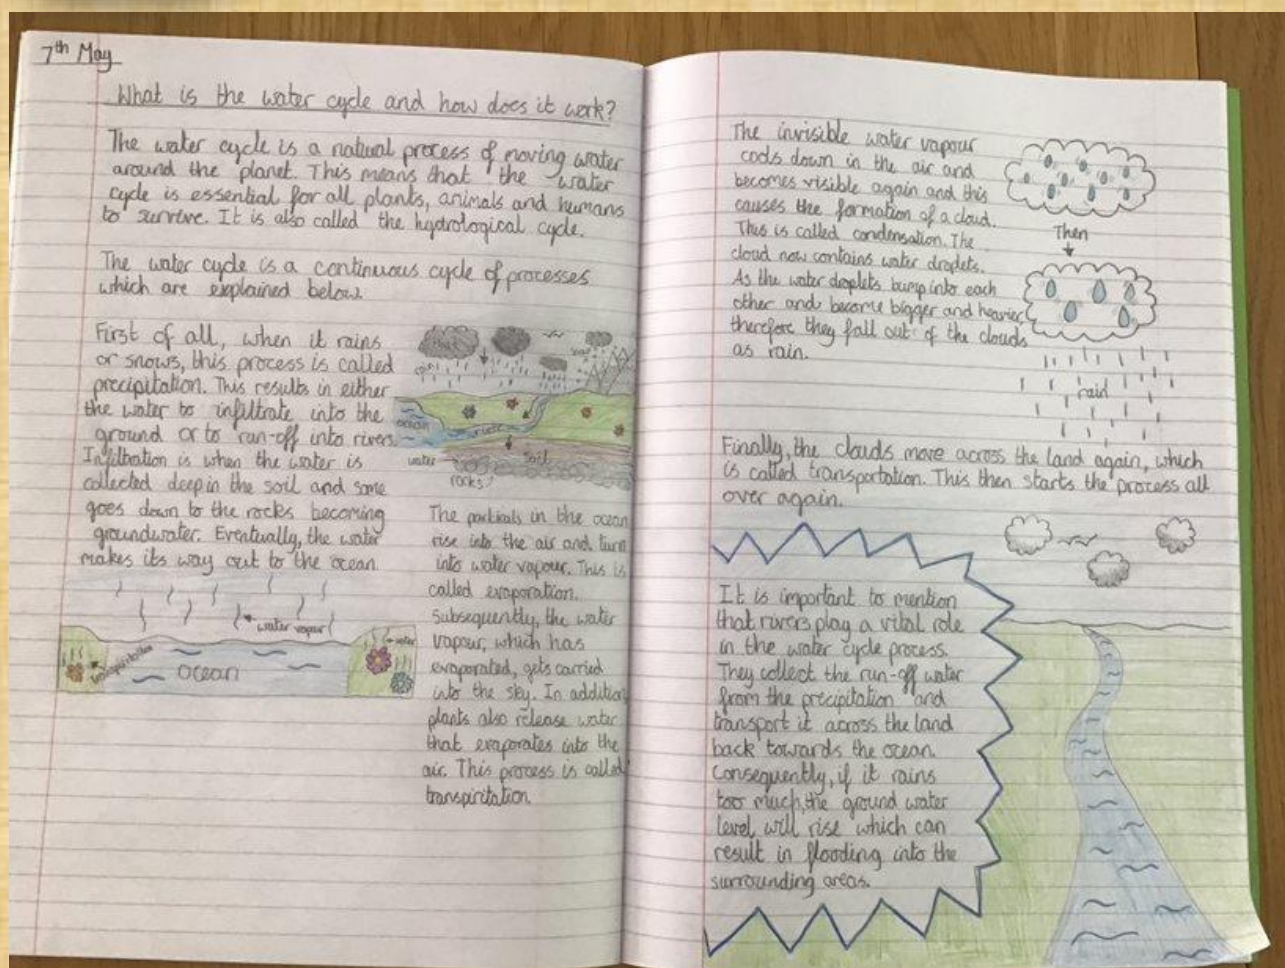 7th May
What is the water cycle and how does it work?
The water cycle is a natural process of moving water
around the planet. This means that the water
cycle is essential for all plants, animals and humans
to survive. It is also called the hydrological cycle.
The water cycle is a continuous cycle of processes
which are explained below.
First of all, when it rains
or snows, this process is called
precipitation. This results in either
the water to infiltrate into the
ground or to run-off into rivers.
Infiltration is when the water is
collected deep in the soil and some
goes down to the rocks becoming
groundwater. Eventually, the water
makes its way out to the ocean.
ocean
river
soil
water
rocks
water vapour
water
transpiritation
ocean
The particals in the ocean
rise into the air and turn
into water vapour. This is
called evaporation.
Subsequently, the water
vapour, which has
evaporated, gets carried
into the sky. In addition
plants also release water
that evaporates into the
air. This process is called
transpiritation.
The invisible water vapour
cools down in the air and
becomes visible again and this
causes the formation of a cloud.
This is called condensation. The
cloud now contains water droplets.
As the water droplets bump into each
other and become bigger and heavier,
therefore they fall out of the clouds
as rain.
Then
rain
Finally, the clouds move across the land again, which
is called transportation. This then starts the process all
over again.
It is important to mention
that rivers play a vital role
in the water cycle process.
They collect the run-off water
from the precipitation and
transport it across the land
back towards the ocean.
Consequently, if it rains
too much, the ground water
level will rise which can
result in flooding into the
surrounding areas.